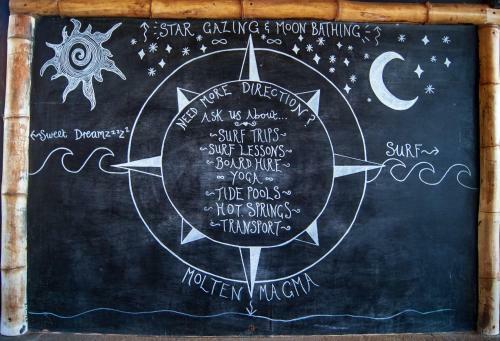 STAR GAZING & MOON BATHING
NEED MORE DIRECTION?
Ask us About...
SURF TRIPS
SURF LESSONS
BOARD HIRE
YOGA
TIDE POOLS
HOT SPRINGS
TRANSPORT
Sweet Dreamzzzzz
SURF
MOLTEN MAGMA